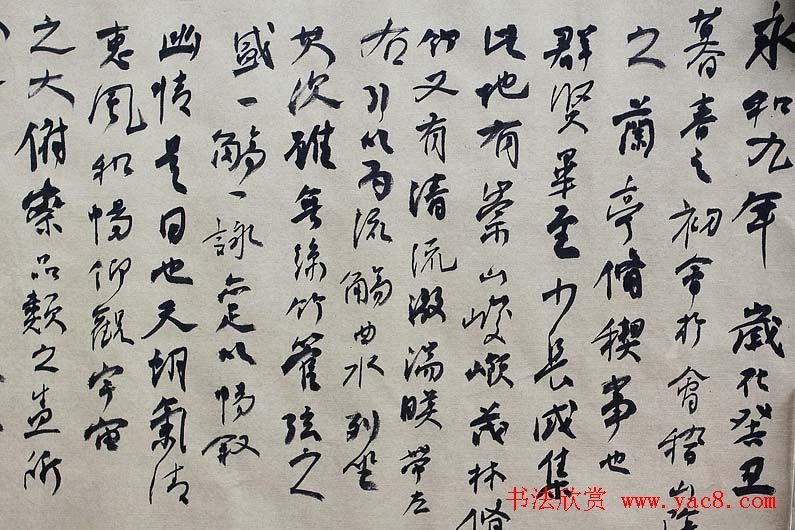 永和九年歲在癸丑
暮春之初會於會稽山陰
之蘭亭脩稧事也
群賢畢至少長咸集
此地有崇山峻嶺茂林脩
竹又有清流激湍暎帶左
右引以為流觴曲水列坐
其次雖無絲竹管弦之
盛一觴一詠亦足以暢敘
幽情是日也天朗氣清
惠風和暢仰觀宇宙
之大俯察品類之盛所
书法欣赏 www.yac8.com